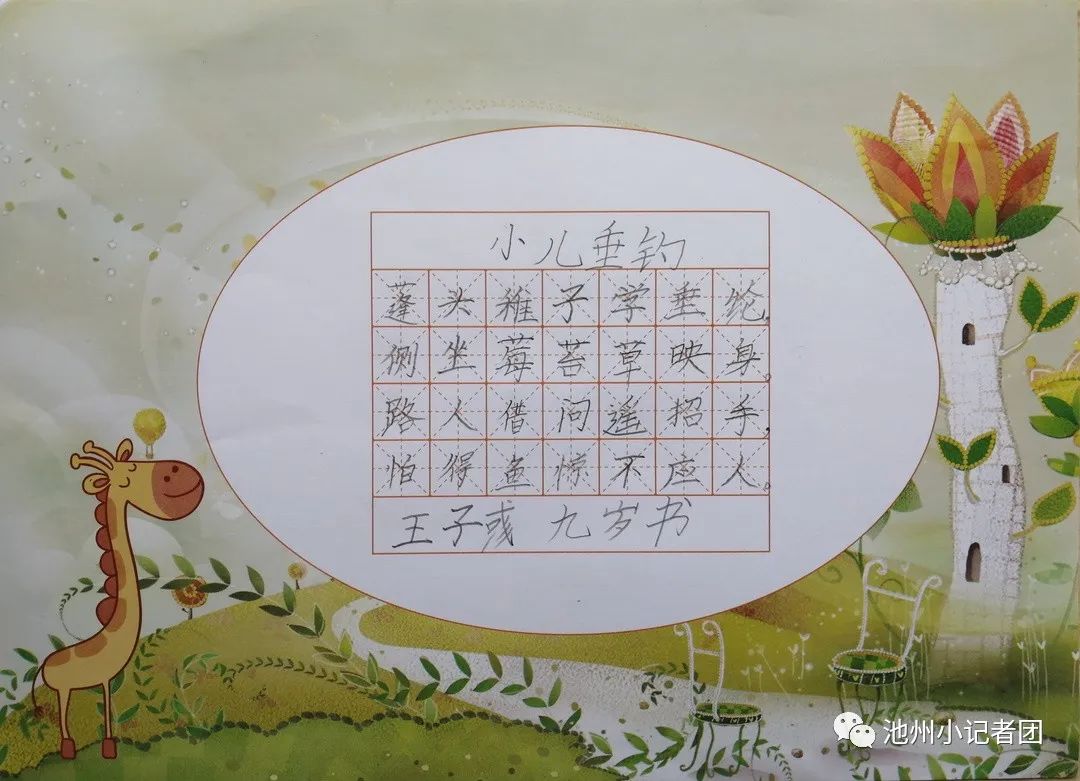 小儿垂钓
蓬头稚子学垂纶,
侧坐莓苔草映身。
路人借问遥招手,
怕得鱼惊不应人。
王子彧 九岁书
池州小记者团